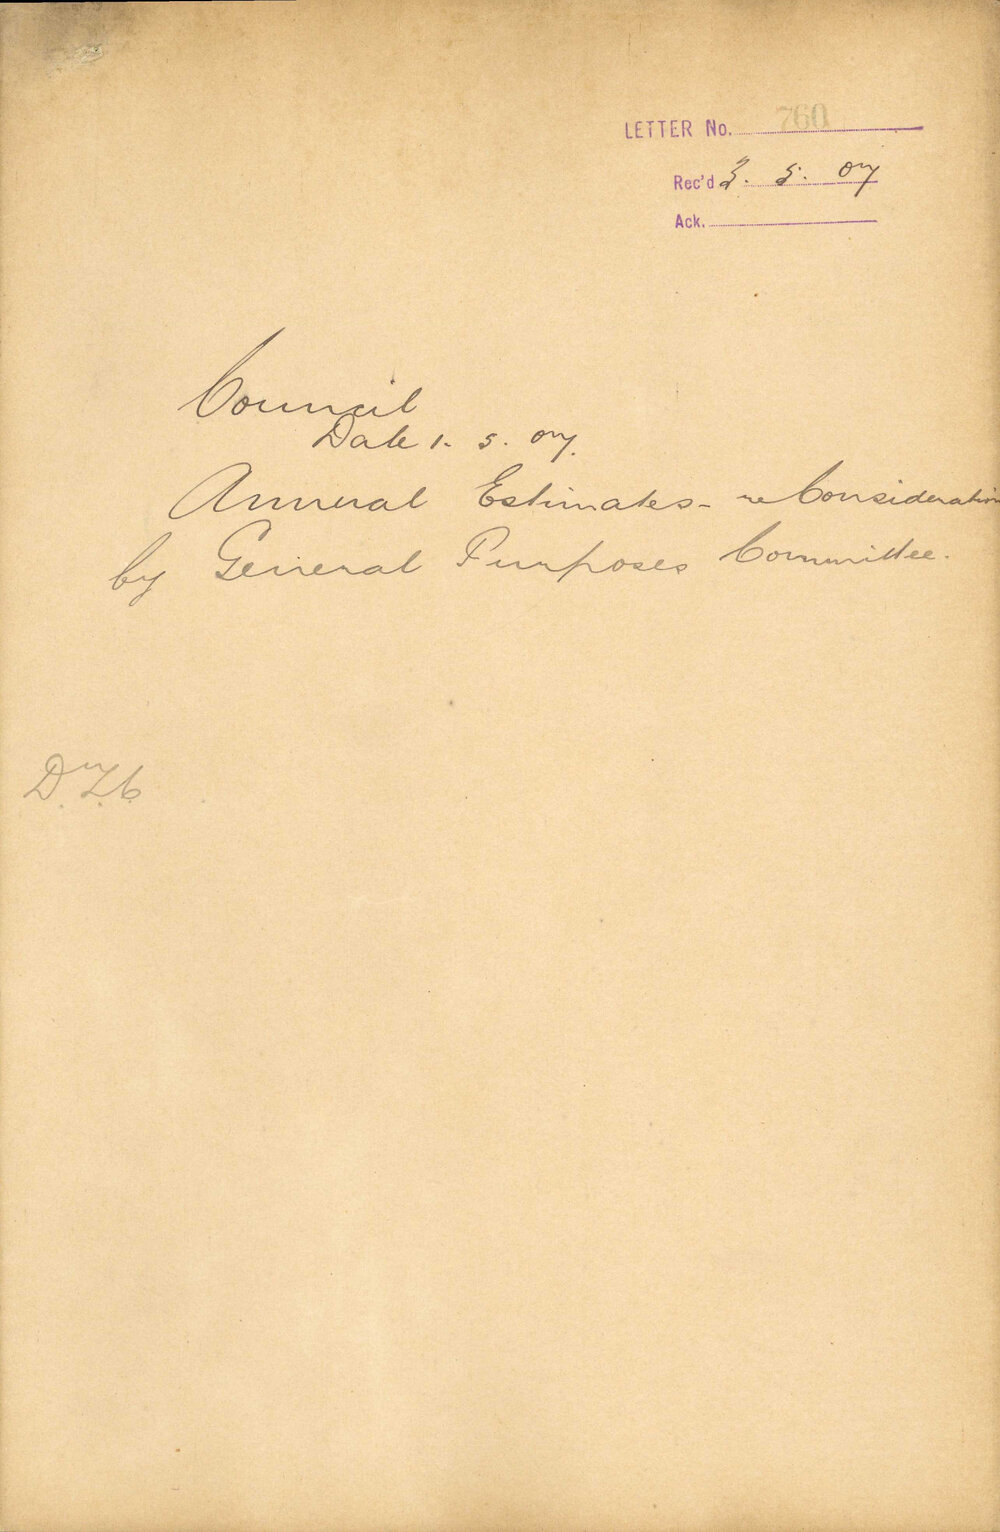 LETTER No. 760
Rec'd 3. 5. 07
Ack.
Council
Date 1. 5. 07.
Annual Estimates - re Consideration
by General Purposes Committee.